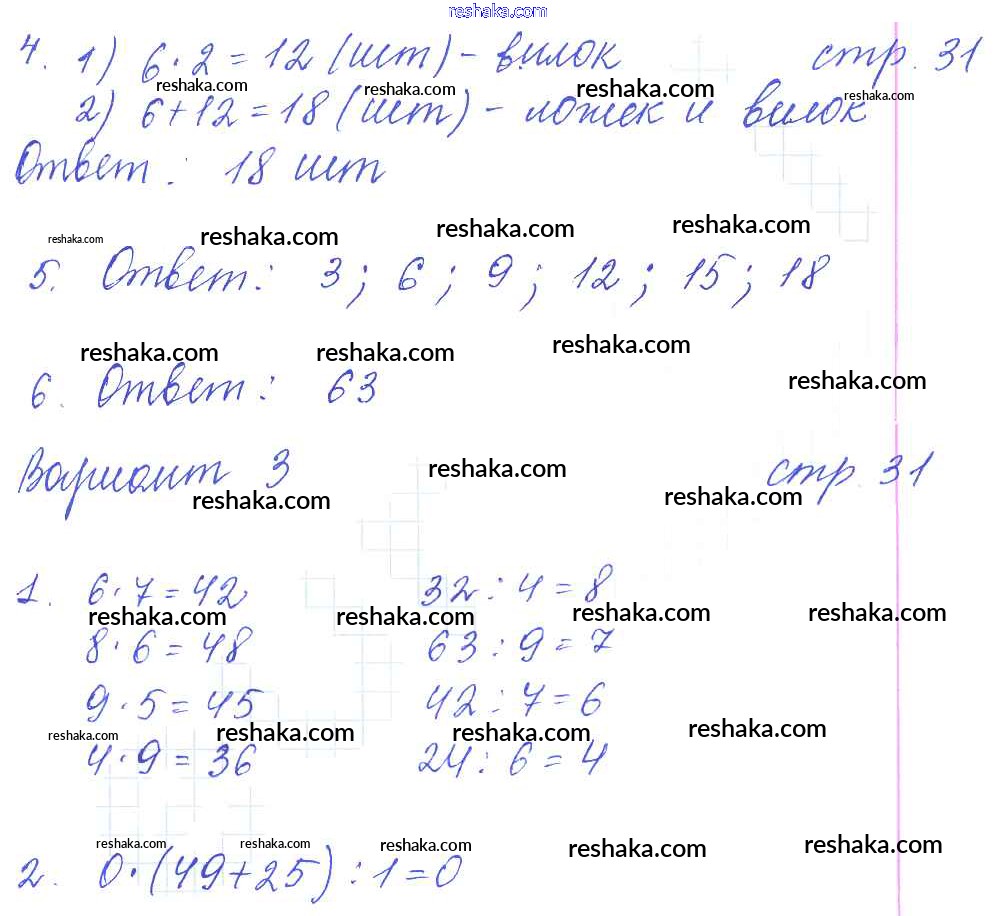 reshaka.com
4. 1) 6 · 2 = 12 (шт) - вилок стр. 31
reshaka.com reshaka.com reshaka.com reshaka.com
2) 6 + 12 = 18 (шт) - ложек и вилок
Ответ : 18 шт
reshaka.com reshaka.com reshaka.com reshaka.com
5. Ответ : 3 ; 6 ; 9 ; 12 ; 15 ; 18
reshaka.com reshaka.com reshaka.com reshaka.com
6. Ответ : 63
Вариант 3 стр. 31
reshaka.com reshaka.com reshaka.com
1. 6 · 7 = 42 32 : 4 = 8
reshaka.com reshaka.com reshaka.com reshaka.com
8 · 6 = 48 63 : 9 = 7
9 · 5 = 45 42 : 7 = 6
reshaka.com reshaka.com reshaka.com reshaka.com
4 · 9 = 36 24 : 6 = 4
reshaka.com reshaka.com reshaka.com reshaka.com reshaka.com
2. 0 · (49 + 25) : 1 = 0